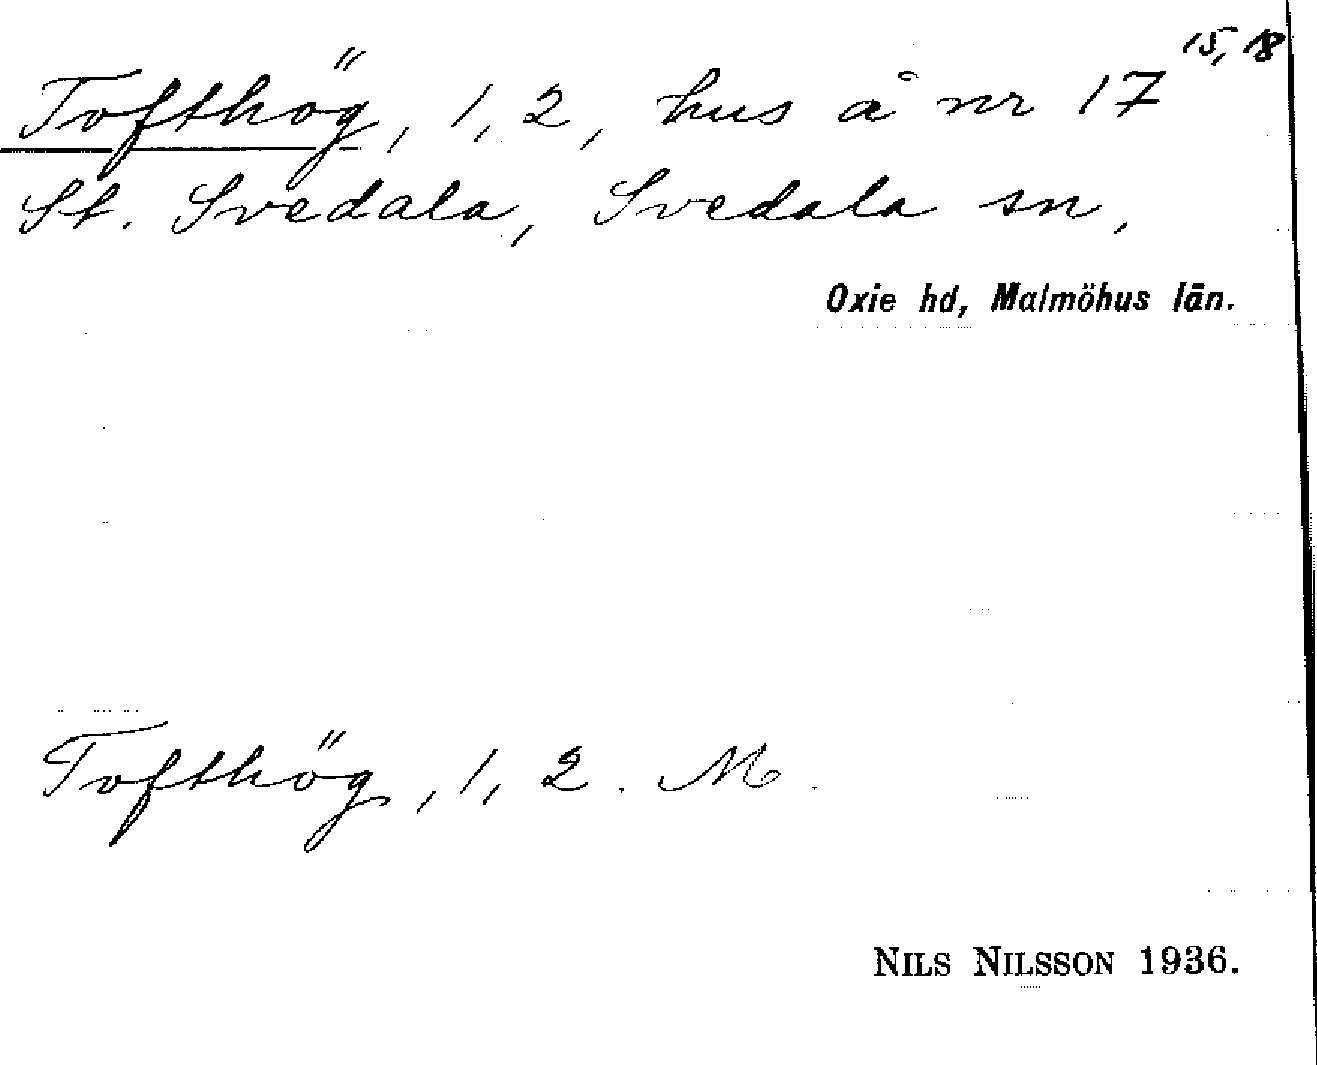 Tofthög, 1, 2, hus å nr 17 15, 18
St. Svedala, Svedala sn,
Oxie hd, Malmöhus län.
Tofthög, 1, 2. M.
NILS NILSSON 1936.